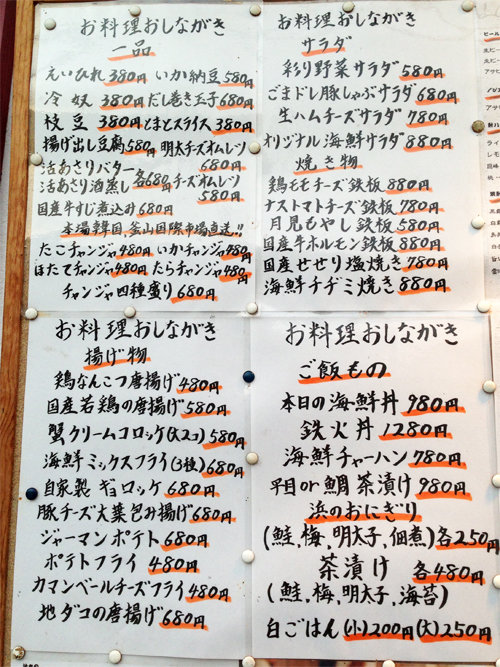 お料理おしながき
一品
えいひれ380円 いか納豆580円
冷奴 380円 だし巻き玉子680円
枝豆 380円 とまとスライス380円
揚げ出し豆腐580円 明太チーズオムレツ
680円
活あさりバター
活あさり酒蒸し 各680円 チーズオムレツ
580円
国産牛すじ煮込み680円
本場韓国、釜山国際市場直送!!
たこチャンジャ480円 いかチャンジャ480円
ほたてチャンジャ480円 たらチャンジャ480円
チャンジャ四種盛り 680円
お料理おしながき
サラダ
彩り野菜サラダ580円
ごまドレ豚しゃぶサラダ680円
生ハムチーズサラダ780円
オリジナル海鮮サラダ880円
焼き物
鶏ももチーズ鉄板880円
ナストマトチーズ鉄板780円
月見もやし鉄板580円
国産牛ホルモン鉄板880円
国産せせり塩焼き780円
海鮮チヂミ焼き880円
お料理おしながき
揚げ物
鶏なんこつ唐揚げ480円
国産若鶏の唐揚げ580円
蟹クリームコロッケ(大2コ)580円
海鮮ミックスフライ(3種)680円
自家製 キョロッケ 680円
豚チーズ大葉包み揚げ680円
ジャーマンポテト 680円
ポテトフライ 480円
カマンベールチーズフライ480円
地ダコの唐揚げ680円
お料理おしながき
ご飯もの
本日の海鮮丼 980円
鉄火丼 1280円
海鮮チャーハン 780円
平目or鯛 茶漬け 980円
浜のおにぎり
(鮭、梅、明太子、佃煮)各250円
茶漬け 各480円
(鮭、梅、明太子、海苔)
白ごはん(小)200円(大)250円